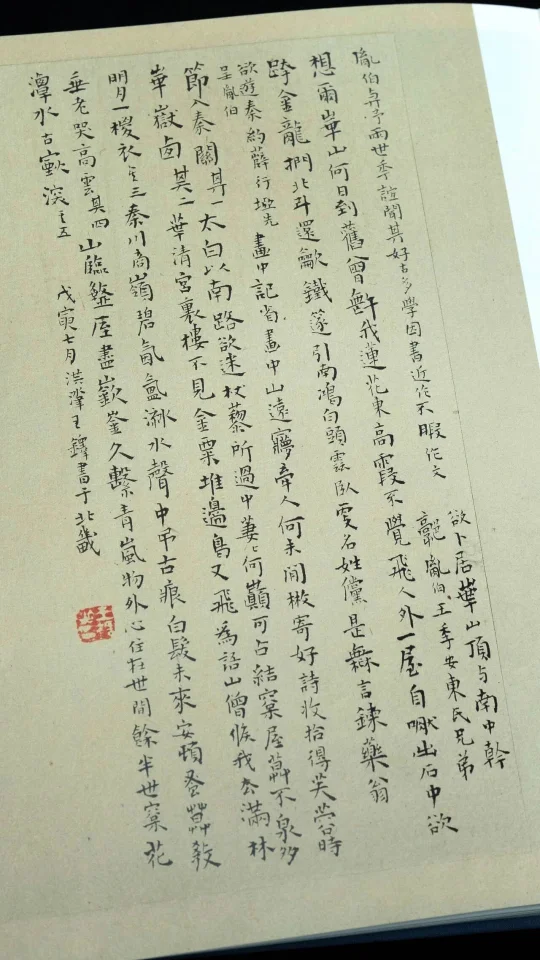 胤伯與予兩世季誼聞其好古多學因書近作不暇作文
欲卜居華山頂与南中幹
胤伯王季安東氏兄弟
想爾華山何日到舊曾無我蓮花東高霞不覺飛人外一屋自嗽出石中欲
跨金龍捫北斗還龡鐵篴引南鴻白頭霖臥雯名姓儻是無言鍊藥翁
欲遊秦約薛行塢先
呈胤伯
畫中記省畫中山遠夢牽人何未閒㮛寄好詩收拾得芙蓉時
節入秦關其一太白以南路欲迷杖藜所過中萋何巔可占結窠屋薜不泉多
華嶽卣其二華清宮裏樓不見金粟堆邊鳥又飛為語山僧候我去滿林
明月一椶衣其三秦川商嶺碧氤氳泖水聲中弔古痕白髮未來安頓蚤
垂老哭高雲其四山臨盩厔盡嶔崟久繫青嵐物外心住在世間餘半世窠花
潭水古巘深其五
戊寅七月洪濛王鐸書于北畿